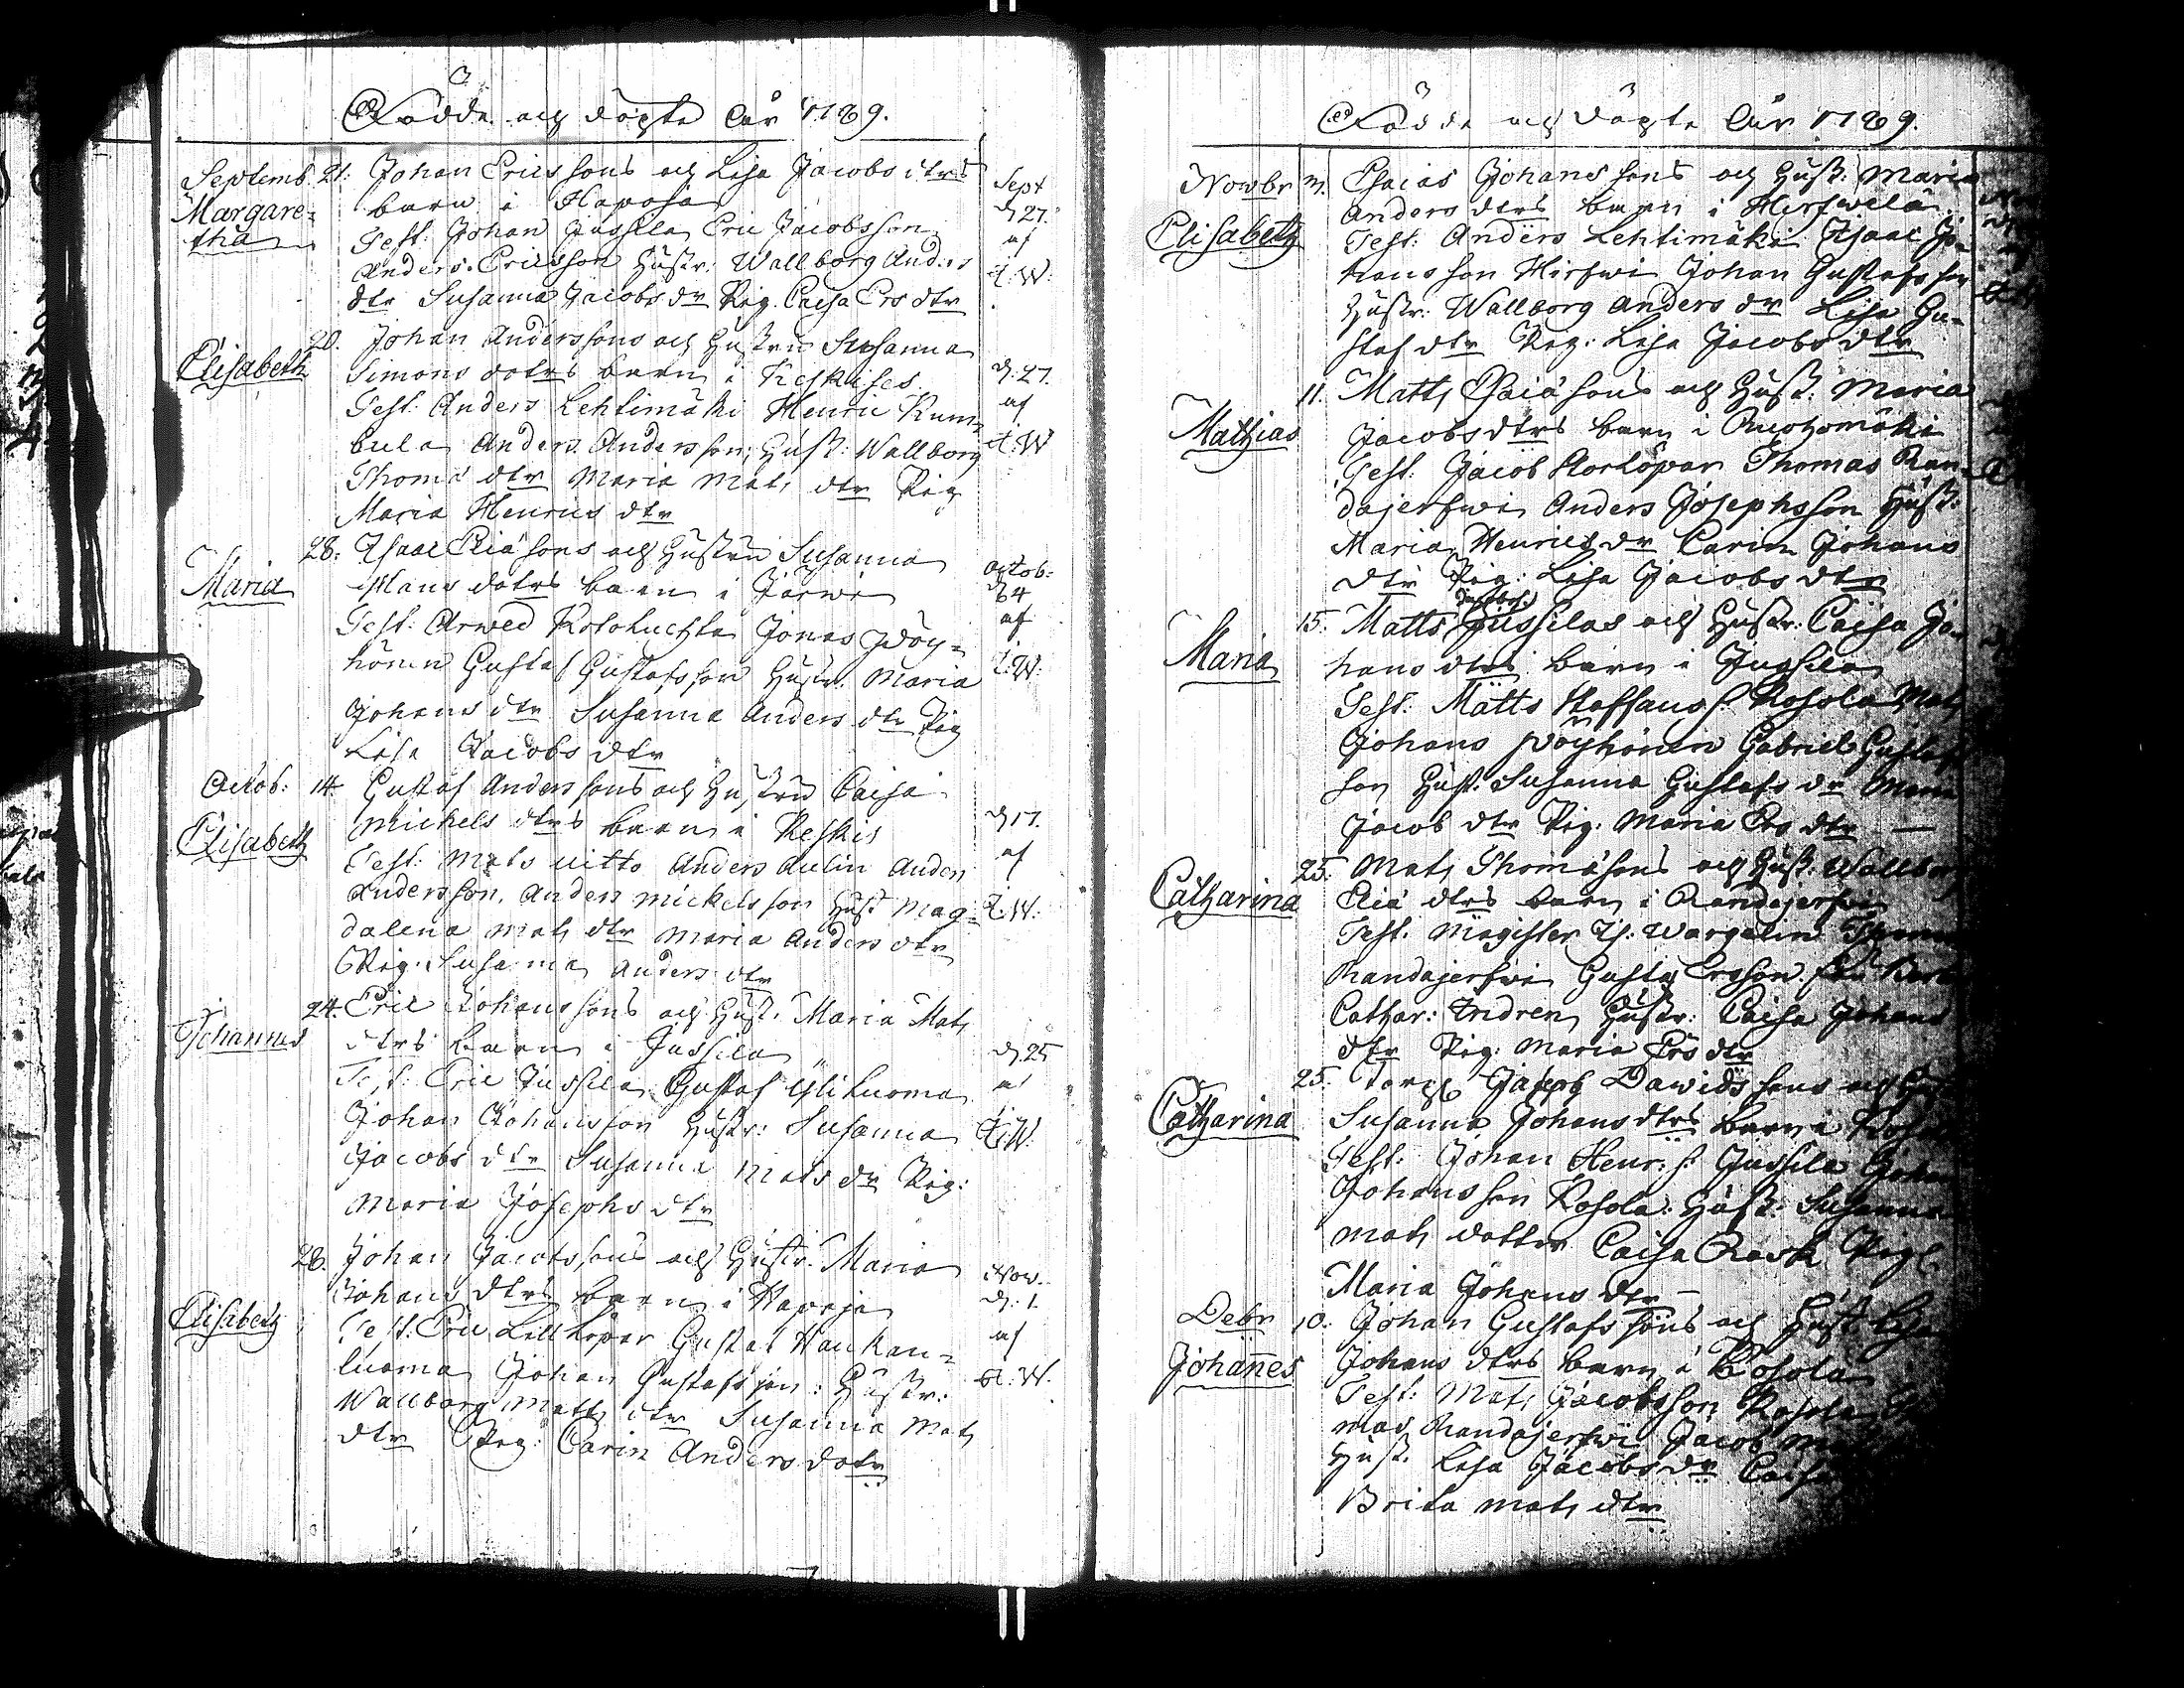 Födde och döpte Åår 1789.
Septemb. 21. Johan Ericssons och Lisa Jacobs dtrs
Margare= barn i Haapoja
tha Test: Johan Jussila Eric Jacobsson
Anders Ericsson Hustr: Wallborg Anders
dtr Susanna Jacobs dr Pig. Caisa Ers dtr
Sept
d. 27.
af
T. W.
20. Johan Anderssons och Hustrun Susanna
Elisabeth Simons dotrs barn i Keskises
Test: Anders Lehtimäki Henric Kum=
bula Anders Andersson, Hust: Wallborg
Thomæ dtr Maria Mats dtr Pig
Maria Henrics dtr
d. 27.
af
T. W
28. Isaac Eliæ sons och Hustrun Susanna
Maria Mans dotrs barn i Järwi
Test: Arwed Kotoluchta Jonas Pöy=
hönen Gustaf Gustafsson Hustr. Maria
Johans dtr Susanna Anders dtr Pig
Lisa Jacobs dtr
octob:
d. 4
af
T. W.
Octob: 14. Gustaf Anderssons och Hustrun Caisa
Elisabeth Michels dtrs barn i Keskis
Test: Mats uitto Anders Aulin Anders
Andersson, Anders Mickelsson Hust Mag=
dalena Mats dtr Maria Anders dtr
Pig. Susanna Anders dtr
d. 17.
af
T. W.
24. Eric Johanssons och Hust. Maria Mats
Johannes dtrs barn i Jussila
Test: Eric Jussila Gustaf Ylikuoma
Johan Johansson Hustr: Susanna
Jacobs dtr Susanna Mats dr Pig:
Maria Josephs dtr
d. 25
af
T. W.
28. Johan Jacobssons och Hustr. Maria
Elisabeth Johans dtrs barn i Haapoja
Test: Eric Lillkåpar Gustaf Haukan=
luoma Johan Gustafsson: Hustr:
Wallborg Matts dtr Susanna Mats
dtr Pig: Carin Anders dotr
Now.
d. 1.
af
T. W.
Födde och döpte Åår 1789.
Nowbr Esaias Johanssons och Hust: Maria
Elisabeth Anders dtrs barn i Hirfwelä
Test: Anders Lehtimäki Isaac Jo=
hansson Hirfwi Johan Gustafsson
Hustr: Wallborg Anders dr Lisa Gu=
staf dtr Pig: Lisa Jacobs dtr
11. Matts Esaiæ sons och Hust: Maria
Mathias Jacobs dtrs barn i Ruotzomäki
Test. Jacob Kortopar Thomas Ran=
dajerfwi Anders Josephsson Hust:
Maria Henrics dr Carin Johans
dtr Pig: Lisa Jacobs dtr
Jacobs.
15. Matts Jussilas och Hustr: Caisa Jo=
Maria hans dtrs barn i Jussila
Test: Matts Staffans s. Kosola Mats
Johans Pöyhönen Gabriel Gustaf
son Hust: Susanna Gustafs dr Maria
Jacob dtr Pig: Maria Ers dtr —
25. Mats Thomæ sons och Hust: Wallbor
Catharina Eliæ dtrs barn i Randajerfwi
Test: Magister Is: Wargelin
Randajerfwi Gustaf Ersson
Cathar: Indren Hustr: Caisa Johans
dtr Pig: Maria Ers dtr
25. Torp Jakob Dawids sons och
Catharina Susanna Johans dtrs barn i
Test: Johan Henr: s. Jussila Johan
Johansson Kosola: Hust: Susanna
Mats dotter Caisa Rask Pig:
Maria Johans dtr —
Debr 10. Johan Gustafssons och Hust Lisa
Johannes Johans dtrs barn i Kosola
Test: Mats Jacobsson Kosola
mas Randajerfwi Jacob
Hust. Lisa Jacobs dr Caisa
Brita Mats dtr